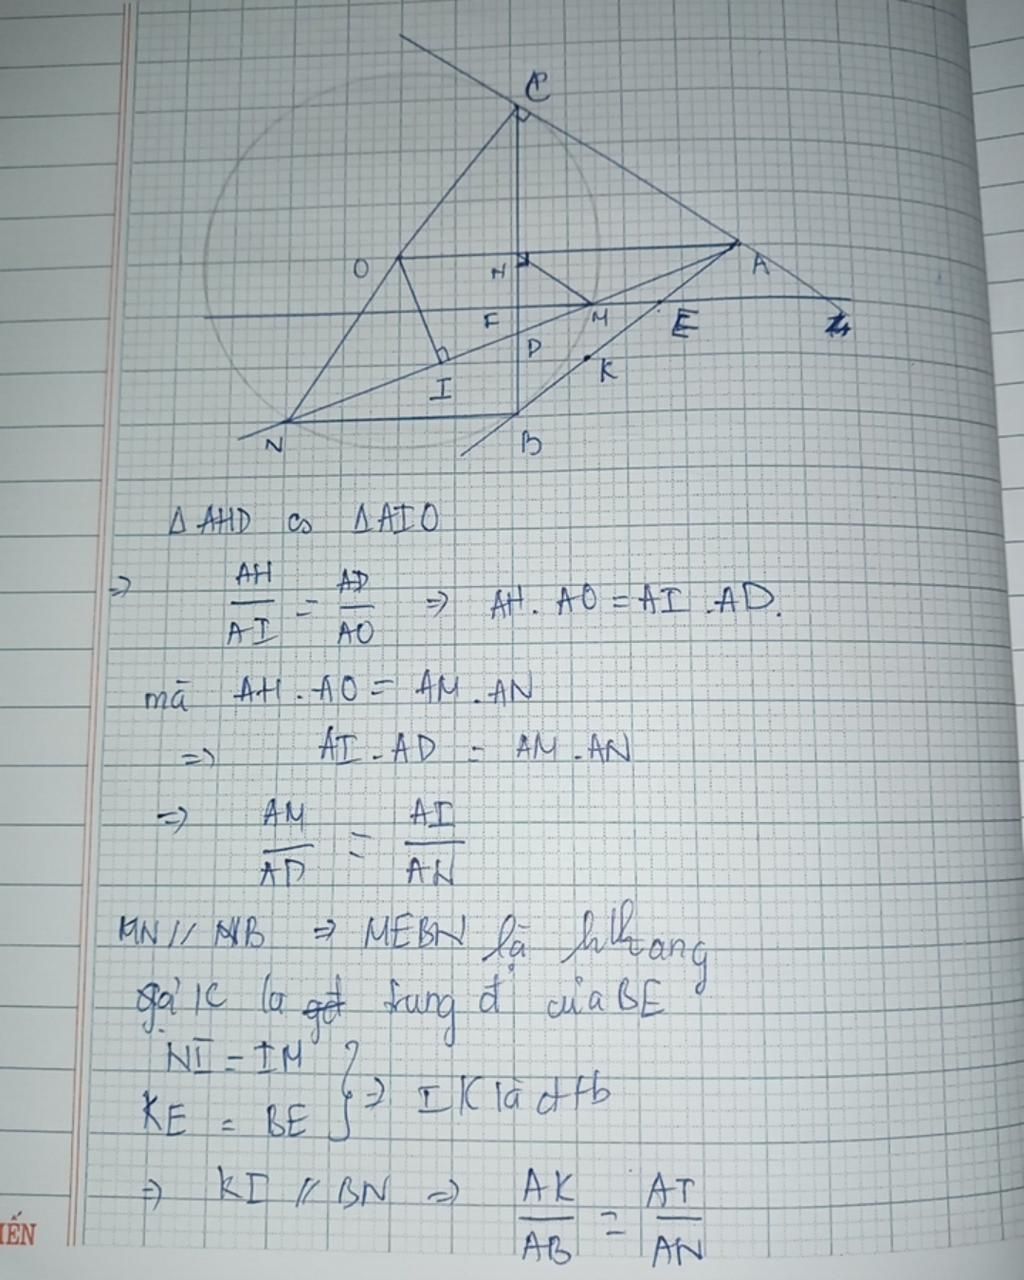 C
O
H
A
F
M
E
D
K
I
N
B
Δ AHD ∽ ΔAIO
⇒ AH/AI = AD/AO ⇒ AH . AO = AI . AD.
mà AH . AO = AM . AN
⇒ AI . AD = AM . AN
⇒ AM/AD = AI/AN
// NB ⇒ MEBN là hthang
gọi K là trung đ' của BE
NI = IM
KE = BE } ⇒ IK là đtb
⇒ KI // BN ⇒ AK/AB = AI/AN
IẾN